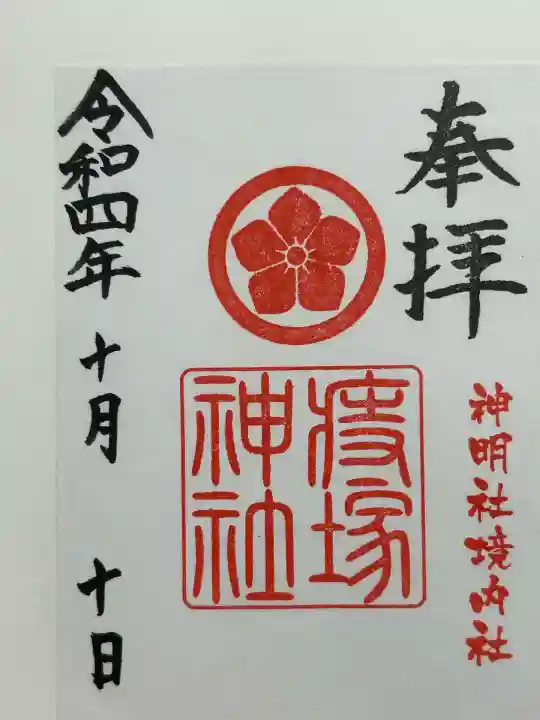 奉拝
神明社境内社
痔塚
神社
令和四年 十月 十日